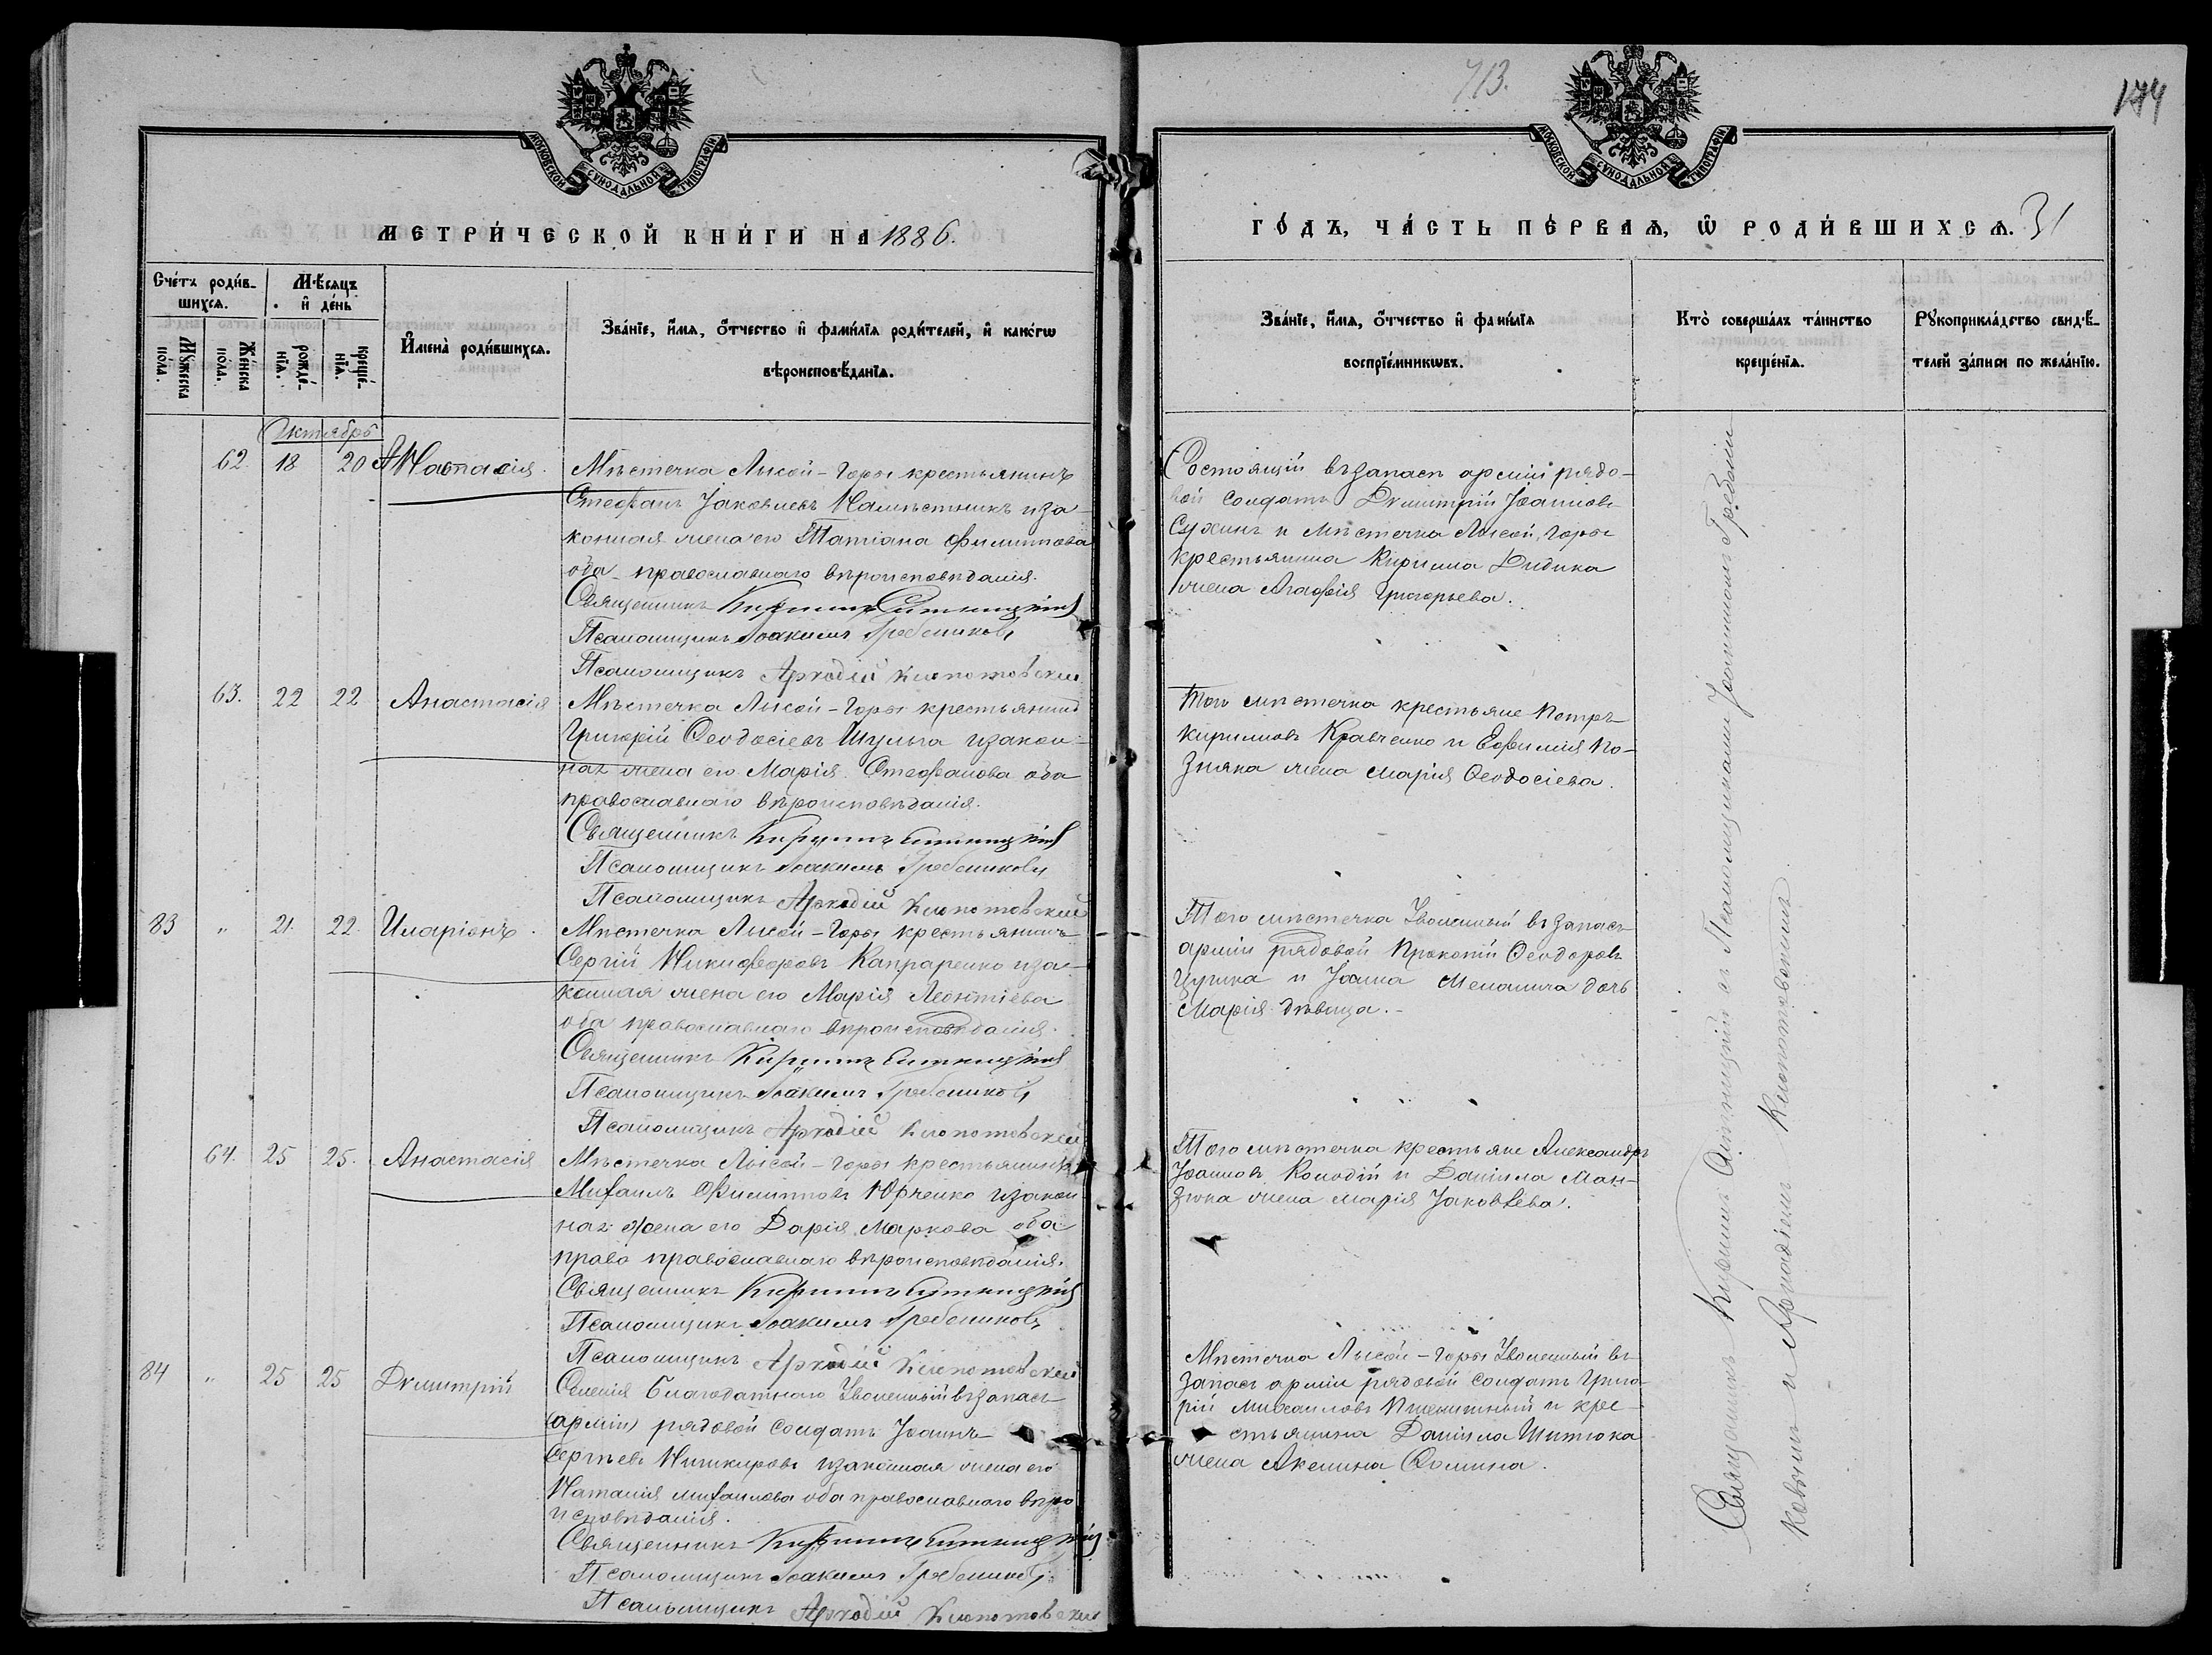 713.
174
МОСКОВСКОЙ СѴНОДАЛЬНОЙ ТИПОГРАФІИ
МОСКОВСКОЙ СѴНОДАЛЬНОЙ ТИПОГРАФІИ
МЕТРИ́ЧЕСКОЙ КНИ́ГИ НА 1886.
ГО́ДЪ, ЧА́СТЬ ПЕ́РВАѦ, Ѡ҆ РОДИ́ВШИХСѦ. 31
Сче́тъ роди́в-
шихсѧ.
Мѣ́сѧцъ
и҆ де́нь
Мꙋ́жеска
по́ла.
Же́нска
по́ла.
рожде́-
нїѧ.
креще́-
нїѧ.
И҆мена̀ роди́вшихсѧ.
Зва́нїе, и҆́мѧ, ѻ҆́тчество и҆ фами́лїѧ роди́телей, и҆ како́гѡ
вѣроисповѣ́данїѧ.
Зва́нїе, и҆́мѧ, ѻ҆́тчество и҆ фами́лїѧ
воспрїе́мникѡвъ.
Кто̀ соверша́лъ та́инство
креще́нїѧ.
Рꙋкоприкла́дство свидѣ́-
телей за́писи по жела́нїю.
Октябрь
62 18 20 Анастасія.
Мѣстечка Лысой-Горы крестьянинъ
Стефанъ Іаковлевъ Намѣстникъ и за-
конная жена его Татіана Филиппова
оба православнаго вѣроисповѣданія.
Священникъ Кириллъ Ситницкій
Псаломщикъ Іоакимъ Гребениковъ
Псаломщикъ Аркадій Клопотовскій
Состоящій въ запасѣ арміи рядо-
вой солдатъ Димитрій Іоанновъ
Сухинъ и мѣстечка Лысой Горы
крестьянина Кирилла Дидика
жена Агафія Григорьева.
63. 22 22 Анастасія
Мѣстечка Лысой-Горы крестьянинъ
Григорій Ѳеодосіевъ Шульга и закон-
ная жена его Марія Стефанова оба
православнаго вѣроисповѣданія.
Священникъ Кириллъ Ситницкій
Псаломщикъ Іоакимъ Гребениковъ
Псаломщикъ Аркадій Клопотовскій
Того мѣстечка крестьяне Петръ
Кирилловъ Кравченко и Евфимія По-
зняка жена Марія Ѳеодосіева.
83 " 21. 22. Иларіонъ.
Мѣстечка Лысой-Горы крестьянинъ
Сергій Никифоровъ Капраренко и за-
конная жена его Марія Леонтіева
оба православнаго вѣроисповѣданія.
Священникъ Кириллъ Ситницкій
Псаломщикъ Іоакимъ Гребениковъ
Псаломщикъ Аркадій Клопотовскій
Того мѣстечка Уволенный въ запасъ
арміи рядовой Прокопій Ѳеодоровъ
Цурика и Іоанна дочь
Марія дѣвица.-
64. 25 25. Анастасія
Мѣстечка Лысой-Горы крестьянинъ
Михаилъ Филипповъ Юрченко и закон
ная жена его Дарія Маркова оба
право православнаго вѣроисповѣданія.
Священникъ Кириллъ Ситницкій
Псаломщикъ Іоакимъ Гребениковъ
Псаломщикъ Аркадій Клопотовскій
Того мѣстечка крестьяне Александръ
Іоанновъ Колодій и Даніила Ман-
зюка жена Марія Іаковлева.
84 " 25 25 Димитрій
Имѣнія Благодатнаго Уволенный въ запасъ
(арміи) рядовой солдатъ Іоаннъ
Сергѣевъ и законная жена его
Наталія Михаилова оба православнаго вѣро
исповѣданія.
Священникъ Кириллъ Ситницкій
Псаломщикъ Іоакимъ Гребениковъ
Псаломщикъ Аркадій Клопотовскій
Мѣстечка Лысой-Горы Уволенный въ
запасъ арміи рядовой солдатъ Григо-
рій Михаиловъ Пшеничный и кре-
стьянина Даніила Шитюка
жена Акелина Ѳомина.
Священникъ Кириллъ Ситницкій съ Псаломщиками Іоакимомъ Гребени
ковымъ и Аркадіемъ Клопотовскимъ